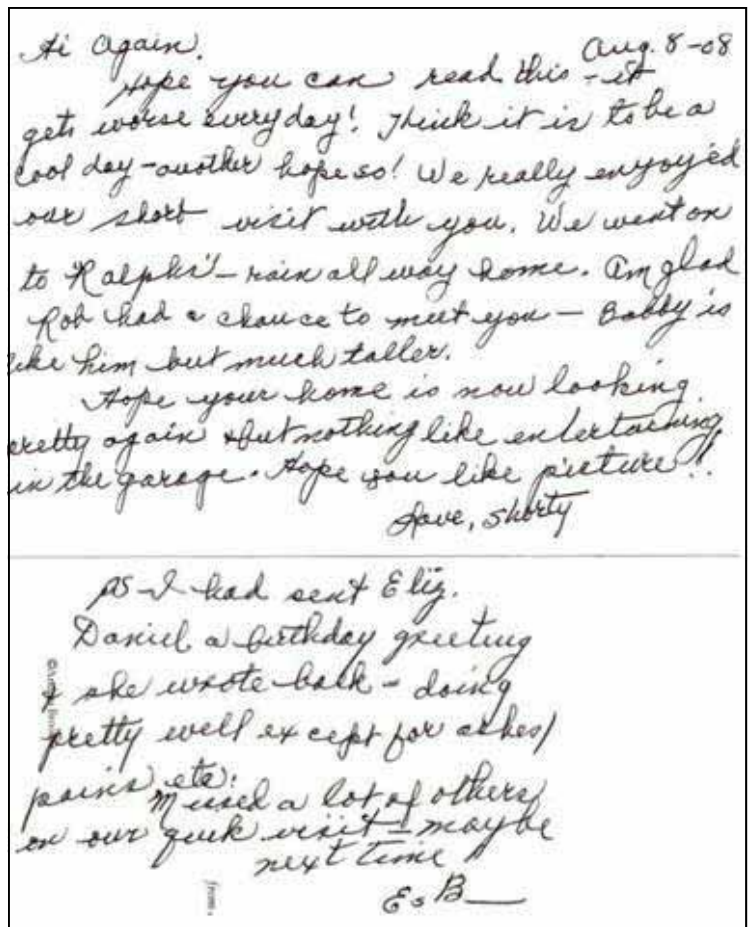 Hi Again. Aug. 8-08
Hope you can read this - it
gets worse everyday! Think it is to be a
cool day - another hope so! We really enjoy'ed
our short visit with you. We went on
to "Ralphs" - rain all way home. Am glad
Rob had a chance to meet you - Bobby is
like him but much taller.
Hope your home is now looking
pretty again but nothing like entertaining
in the garage. Hope you like picture!!
Love, Shorty
PS - I had sent Eliz.
Daniel a birthday greeting
& she wrote back - doing
pretty well except for aches/
pains etc.
Missed a lot of others
on our quick visit - maybe
next time
E & B
from: